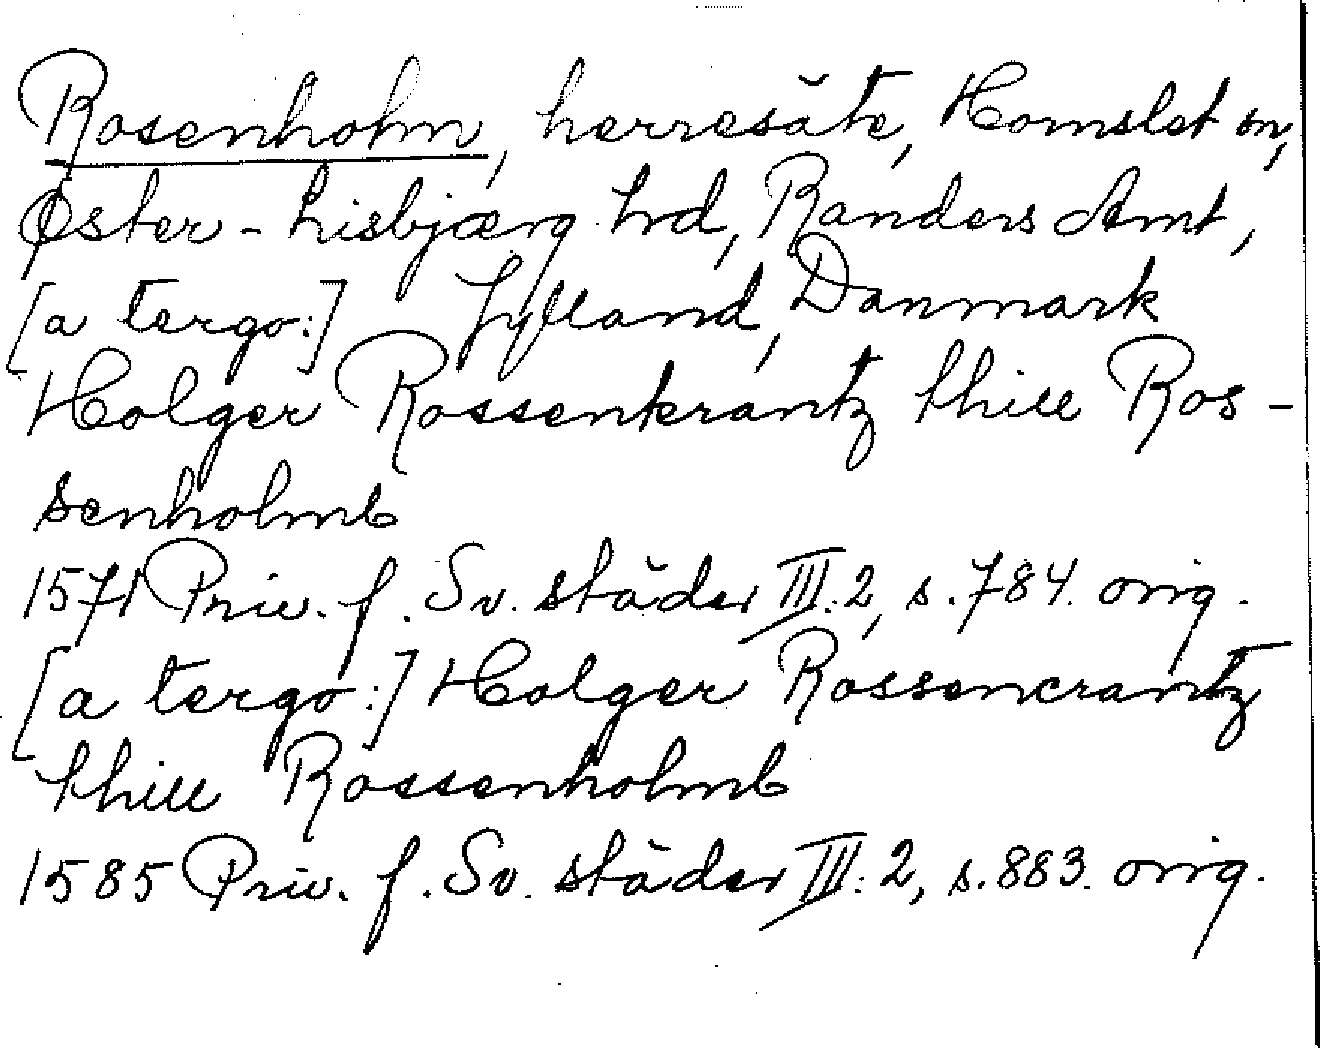 Rosenholm, herresäte, Hornslet sn,
Øster-Lisbjærg hrd, Randers Amt,
[a tergo:] Jylland, Danmark
Holger Rossenkrantz thill Ros-
senholmb
1571 Priv. f. Sv. städer III:2, s. 784. orig.
[a tergo:] Holger Rossencrantz
thill Rossenholmb
1585 Priv. f. Sv. städer III:2, s. 883. orig.